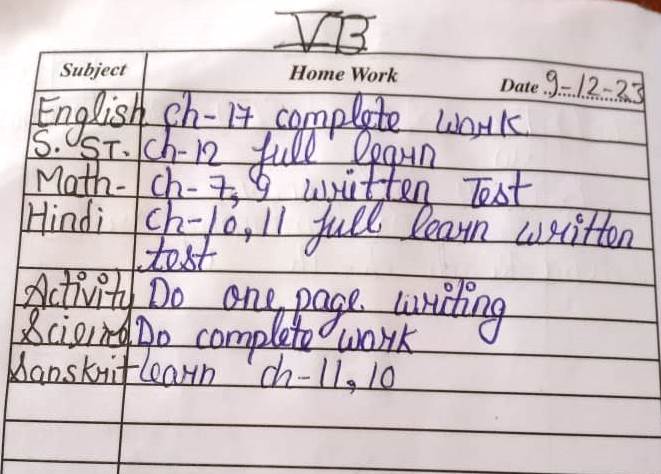 VB
Subject Home Work Date 9-12-23
English ch-17 complete work
S. ST. ch-12 full learn
Math- ch-7, 9 written Test
Hindi ch-10, 11 full learn written
test
Activity Do one page writing
Science Do complete work
Sanskrit learn ch-11, 10